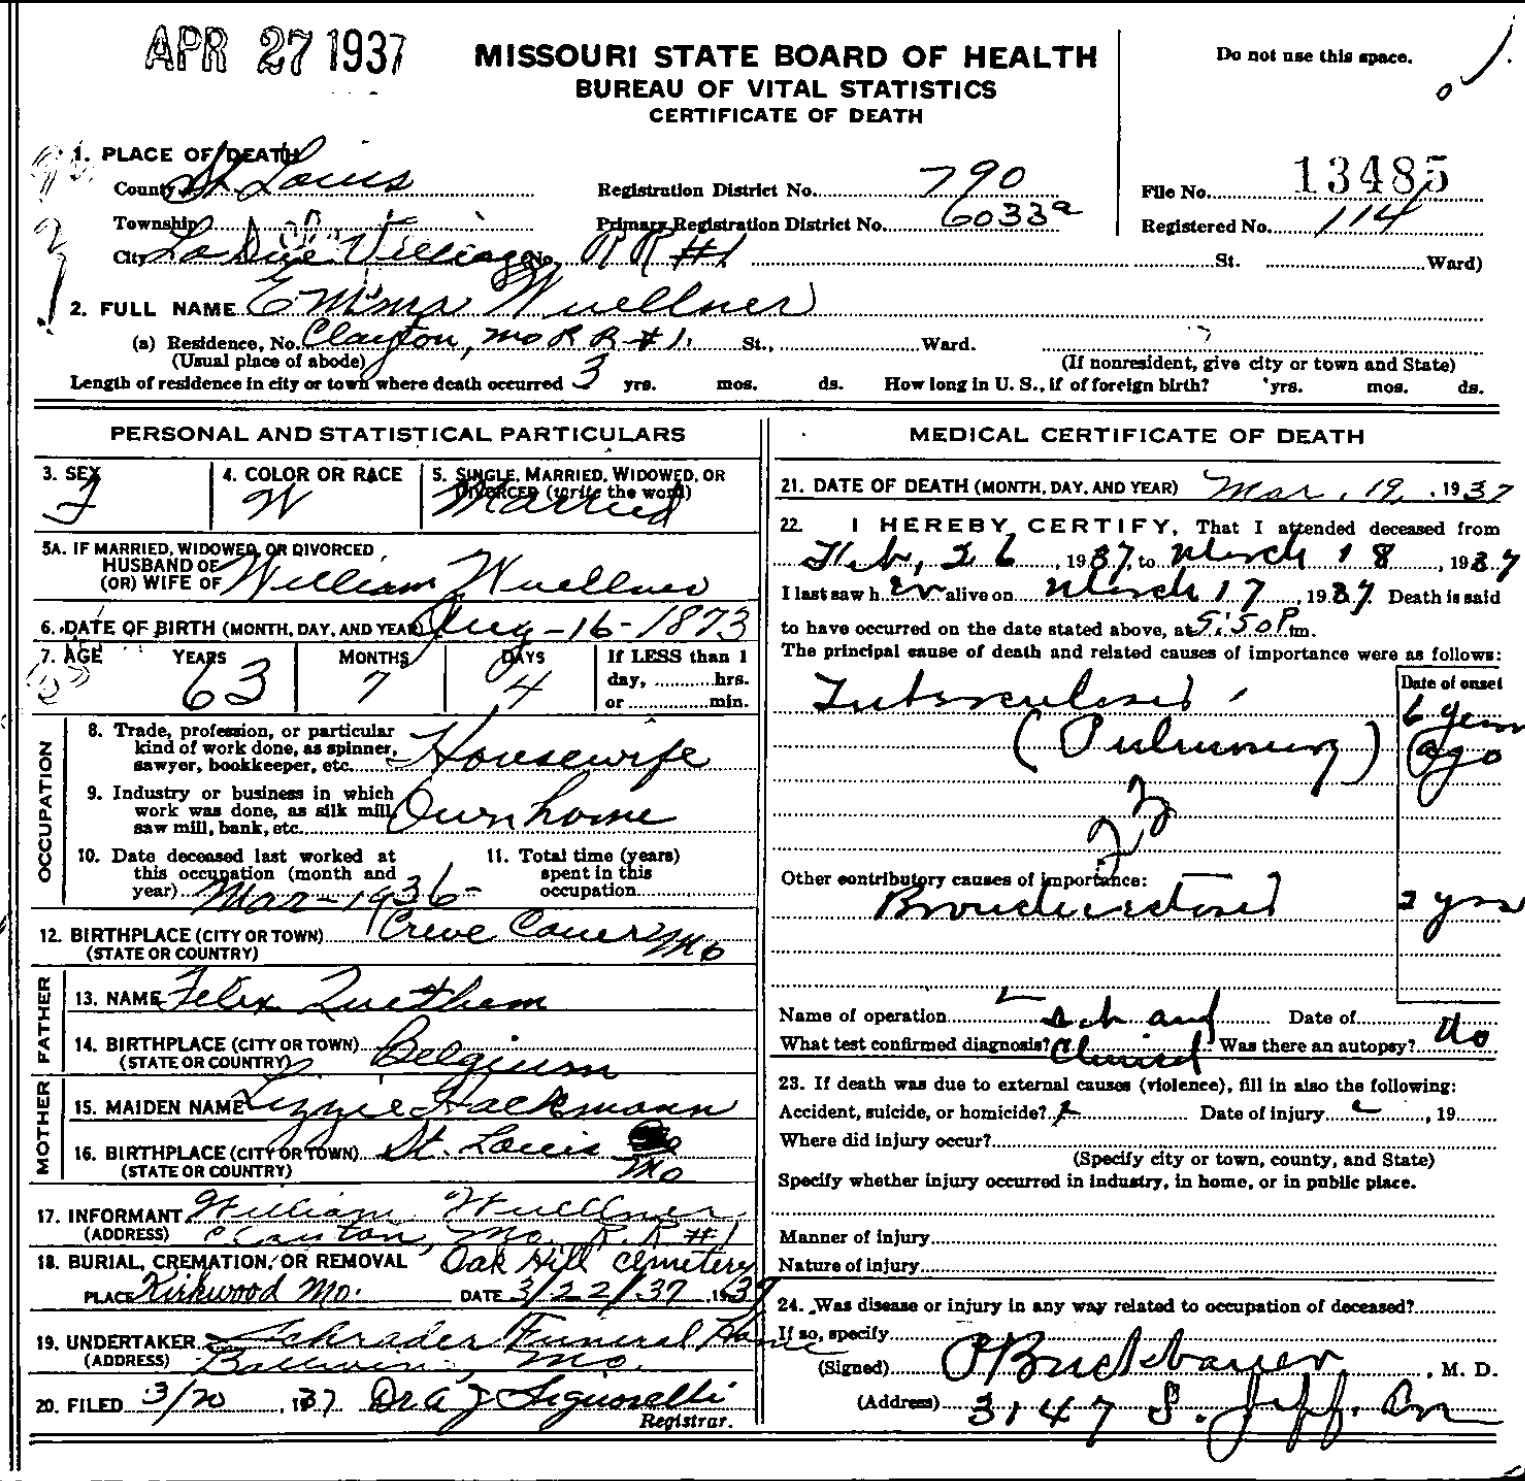 APR 27 1937
MISSOURI STATE BOARD OF HEALTH
BUREAU OF VITAL STATISTICS
CERTIFICATE OF DEATH
Do not use this space.
1. PLACE OF DEATH
County St. Louis Registration District No. 790 File No. 13485
Township Primary Registration District No. 6033a Registered No. 114
City La Due Village No. RR #1 St. Ward)
2. FULL NAME Emma Wuellner
(a) Residence, No. Clayton, Mo R R #1. St., Ward.
(Usual place of abode) (If nonresident, give city or town and State)
Length of residence in city or town where death occurred 3 yrs. mos. ds. How long in U. S., if of foreign birth? yrs. mos. ds.
PERSONAL AND STATISTICAL PARTICULARS
3. SEX F
4. COLOR OR RACE W
5. SINGLE, MARRIED, WIDOWED, OR DIVORCED (write the word) Married
5A. IF MARRIED, WIDOWED, OR DIVORCED
HUSBAND OF
(OR) WIFE OF William Wuellner
6. DATE OF BIRTH (MONTH, DAY, AND YEAR) Aug-16-1873
7. AGE YEARS MONTHS DAYS If LESS than 1
63 7 4 day, hrs.
or min.
OCCUPATION
8. Trade, profession, or particular
kind of work done, as spinner,
sawyer, bookkeeper, etc. Housewife
9. Industry or business in which
work was done, as silk mill,
saw mill, bank, etc. Own home
10. Date deceased last worked at
this occupation (month and
year) Mar-1936-
11. Total time (years)
spent in this
occupation
12. BIRTHPLACE (CITY OR TOWN) Creve Couer Mo
(STATE OR COUNTRY)
FATHER
13. NAME Felix Quethem
14. BIRTHPLACE (CITY OR TOWN) Belgium
(STATE OR COUNTRY)
MOTHER
15. MAIDEN NAME Lizzie Hackmann
16. BIRTHPLACE (CITY OR TOWN) St. Louis Mo
(STATE OR COUNTRY)
17. INFORMANT William Wuellner
(ADDRESS) Clayton, Mo. R.R #1
18. BURIAL, CREMATION, OR REMOVAL Oak Hill Cemetery
PLACE Kirkwood Mo. DATE 3/22/37 1937
19. UNDERTAKER Schrader Funeral Home
(ADDRESS) Ballwin, Mo.
20. FILED 3/20, 1937 Dr A J Signorelli
Registrar.
MEDICAL CERTIFICATE OF DEATH
21. DATE OF DEATH (MONTH, DAY, AND YEAR) Mar. 19, 1937
22. I HEREBY CERTIFY, That I attended deceased from
Feb, 26, 1937, to March 18, 1937
I last saw her alive on March 17, 1937. Death is said
to have occurred on the date stated above, at 5:50 P.m.
The principal cause of death and related causes of importance were as follows:
Date of onset
Tuberculosis 6 years
(Pulmonary) ago
Other contributory causes of importance:
Bronchiectasis 2 yrs
Name of operation Date of
What test confirmed diagnosis? Clinical Was there an autopsy? No
23. If death was due to external causes (violence), fill in also the following:
Accident, suicide, or homicide? Date of injury , 19
Where did injury occur?
(Specify city or town, county, and State)
Specify whether injury occurred in industry, in home, or in public place.
Manner of injury
Nature of injury
24. Was disease or injury in any way related to occupation of deceased?
If so, specify
(Signed) , M. D.
(Address) 3147 S. Jeff.